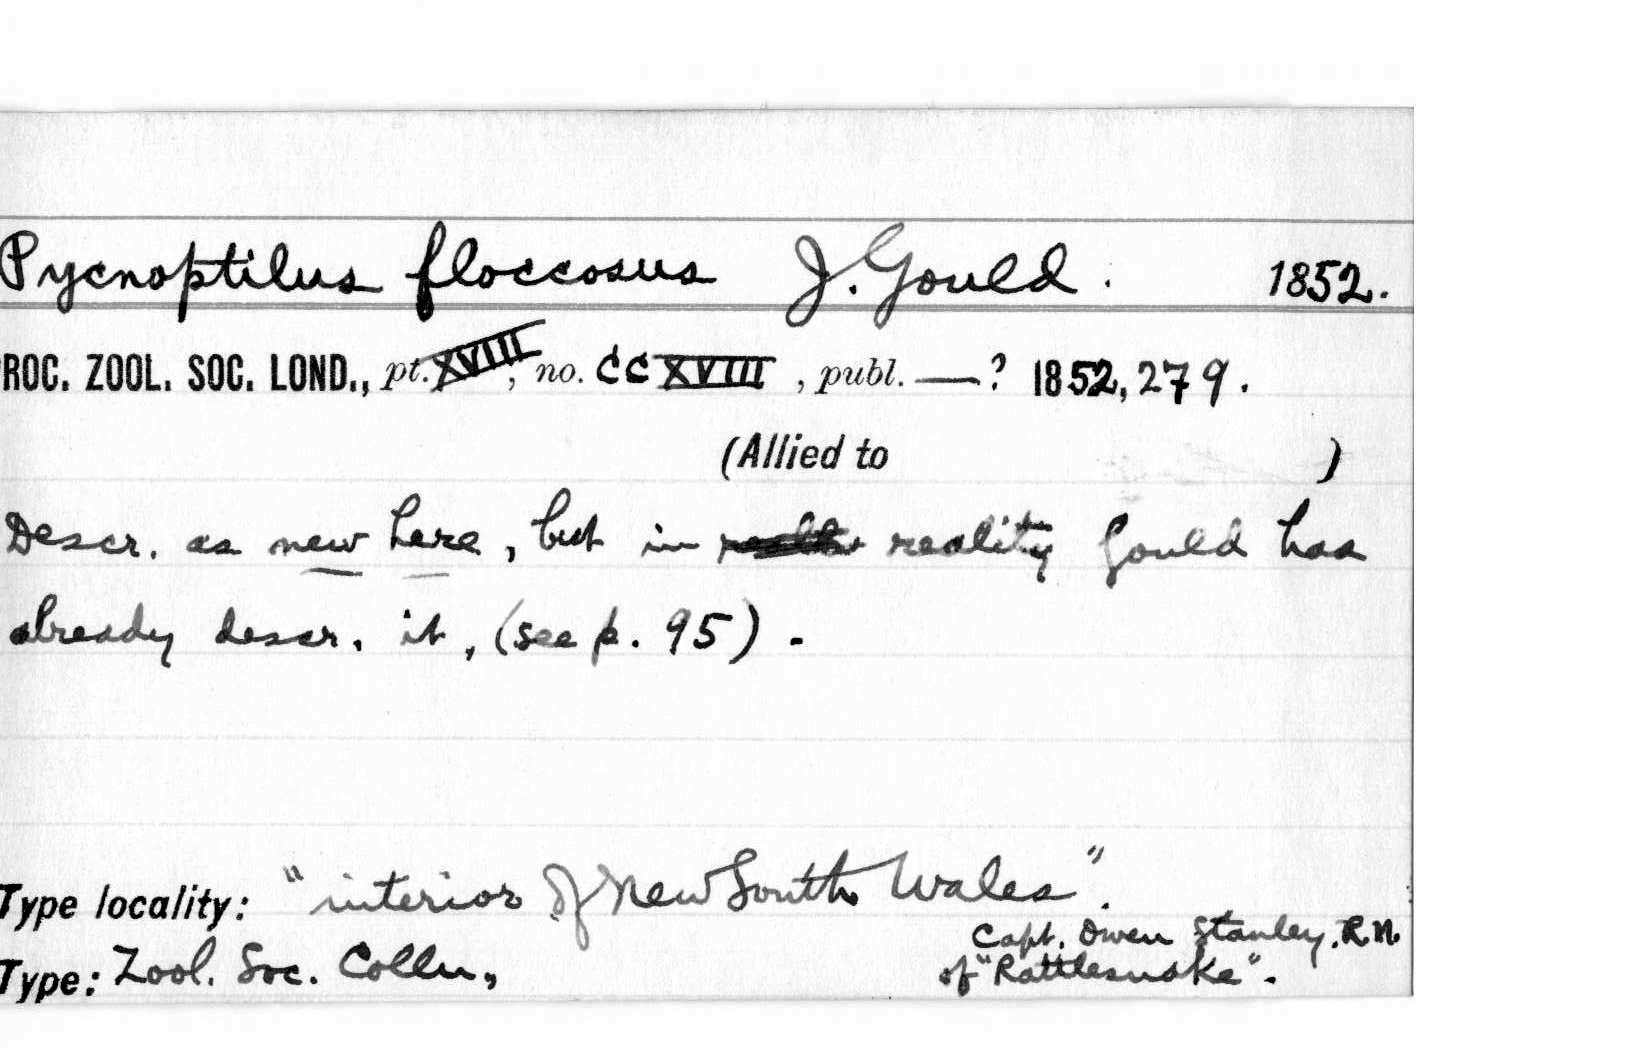 Pycnoptilus floccosus J. Gould. 1852.
ROC. ZOOL. SOC. LOND., pt. XVIII, no. CCXVIII, publ. —? 1852, 279.
(Allied to )
Descr. as new here, but in reality Gould has
already descr. it, (see p. 95).
Type locality: "interior of New South Wales".
Capt. Owen Stanley, R.N.
Type: Zool. Soc. Colln, of "Rattlesnake".